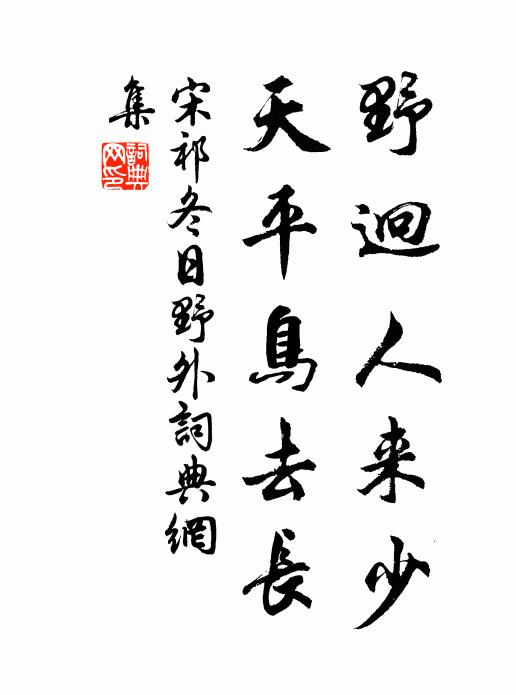 野迥人来少
天平鳥去長
宋祁冬日野外詞典網
集
詞典
网印